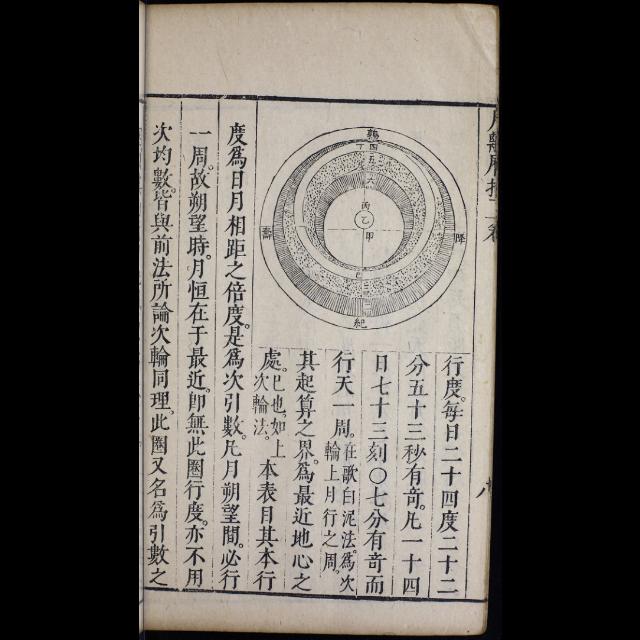 月離曆指二卷
八
行度。每日二十四度二十二
分五十三秒有奇。凡一十四
日七十三刻〇七分有奇而
行天一周。在歌白泥法。爲次輪上月行之周。
其起算之界。爲最近地心之
處。巳也。如上次輪法。本表目其本行
度爲日月相距之倍度。是爲次引數。凡月朔望間。必行
一周。故朔望時。月恒在于最近。卽無此圈行度。亦不用
次均數。皆與前法所論次輪同理。此圈又名爲引數之
鶉
丁四五六
戊
丙
乙
甲
壽
降
己
三
二
紀